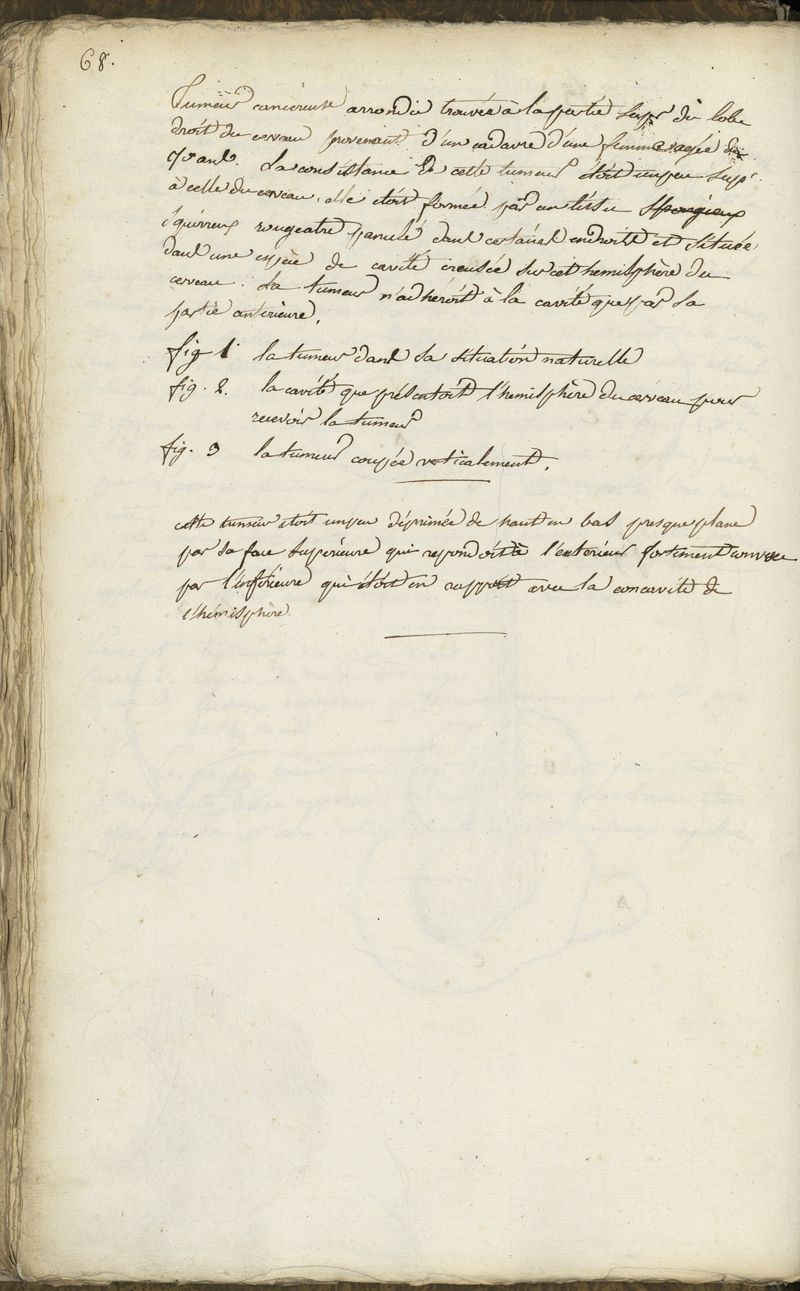 68.
Tumeur cancereuse arrondie trouvée à la partie supr du lobe
droit du cerveau provenant d'un cadavre d'une femme agée de
ans. La consistance de cette tumeur étoit un peu supr
à celle du cerveau, elle étoit formée par un tissu spongieux
squirreux rougeatre dans certains endroits et située
dans une espèce de cavité creusée sur cet hemisphère du
cerveau. La tumeur n'adhéroit à la cavité que par sa
partie antérieure.
fig 1 la tumeur dans sa situation naturelle
fig. 2. la cavité que présentoit l'hemisphère du cerveau pour
recevoir la tumeur
fig. 3 la tumeur coupée verticalement.
cette tumeur étoit un peu déprimée de haut en bas presque plane
par sa face supérieure qui repondoit à l'exterieur fortement convexe
par l'inférieure qui étoit en rapport avec la concavité de
l'hémisphère